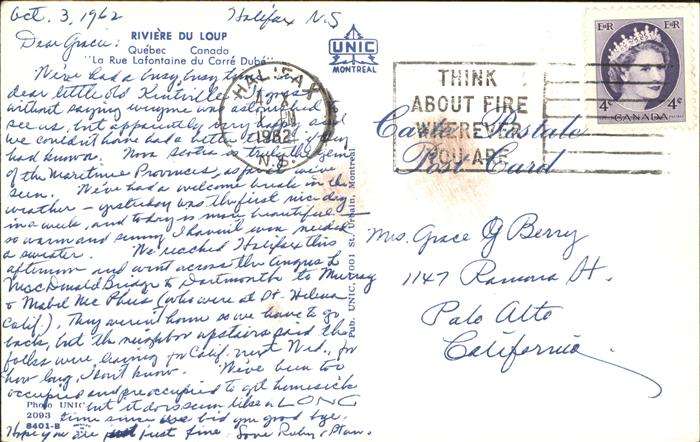 Oct. 3, 1962
Halifax N.S
Dear Gracie:
RIVIÈRE DU LOUP
Québec Canada
"La Rue Lafontaine du Carré Dubé"
UNIC
MONTREAL
We've had a busy, busy time in
dear little old Kentville. I must
without saying everyone was astonished to
see us, but apparently very happy and
we couldn't have had a better time if they
had known. Nova Scotia is truly the gem
of the Maritime Provinces, as far as we've
seen. We've had a welcome break in the
weather – yesterday was the first nice day
in a week, and today is more beautiful –
so warm and sunny I haven't even needed
a sweater. We reached Halifax this
afternoon and went across the Angus L.
MacDonald Bridge to Dartmouth to Murray
& Mabel Mc Phees (who were at St. Helena
Calif.). They weren't home so we have to go
back, but the neighbor upstairs said the
folks were leaving for Calif. next Wed., for
how long, I don't know. We've been too
occupied and preoccupied to get homesick
but it does seem like a LONG
time since we bid you good bye.
Hope you are just fine. Love Ruby & Stan.
Photo UNIC
2093
8401-B
Pub. UNIC, 7001 St. Urbain, Montréal
HALIFAX
1962
N.S.
THINK
ABOUT FIRE
WHEREVER
YOU ARE
E II R
E II R
4c
4c
CANADA
Carte Postale
Post Card
Mrs. Grace G Berry
1147 Ramona St.
Palo Alto
California